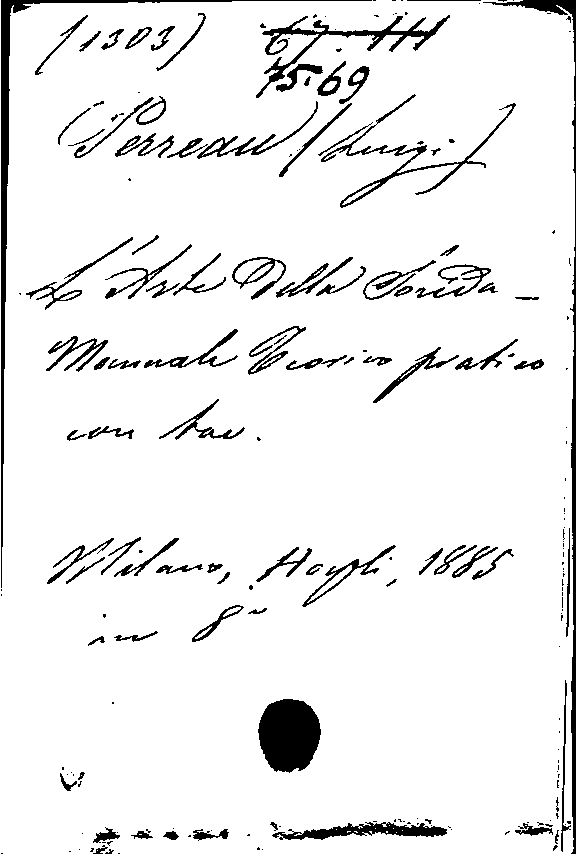 (1303) 67. III
75.69
Perreau (Luigi)
L'Arte Della
Manuale Teorico pratico
con tav.
Milano, Hoepli, 1885
in 8°